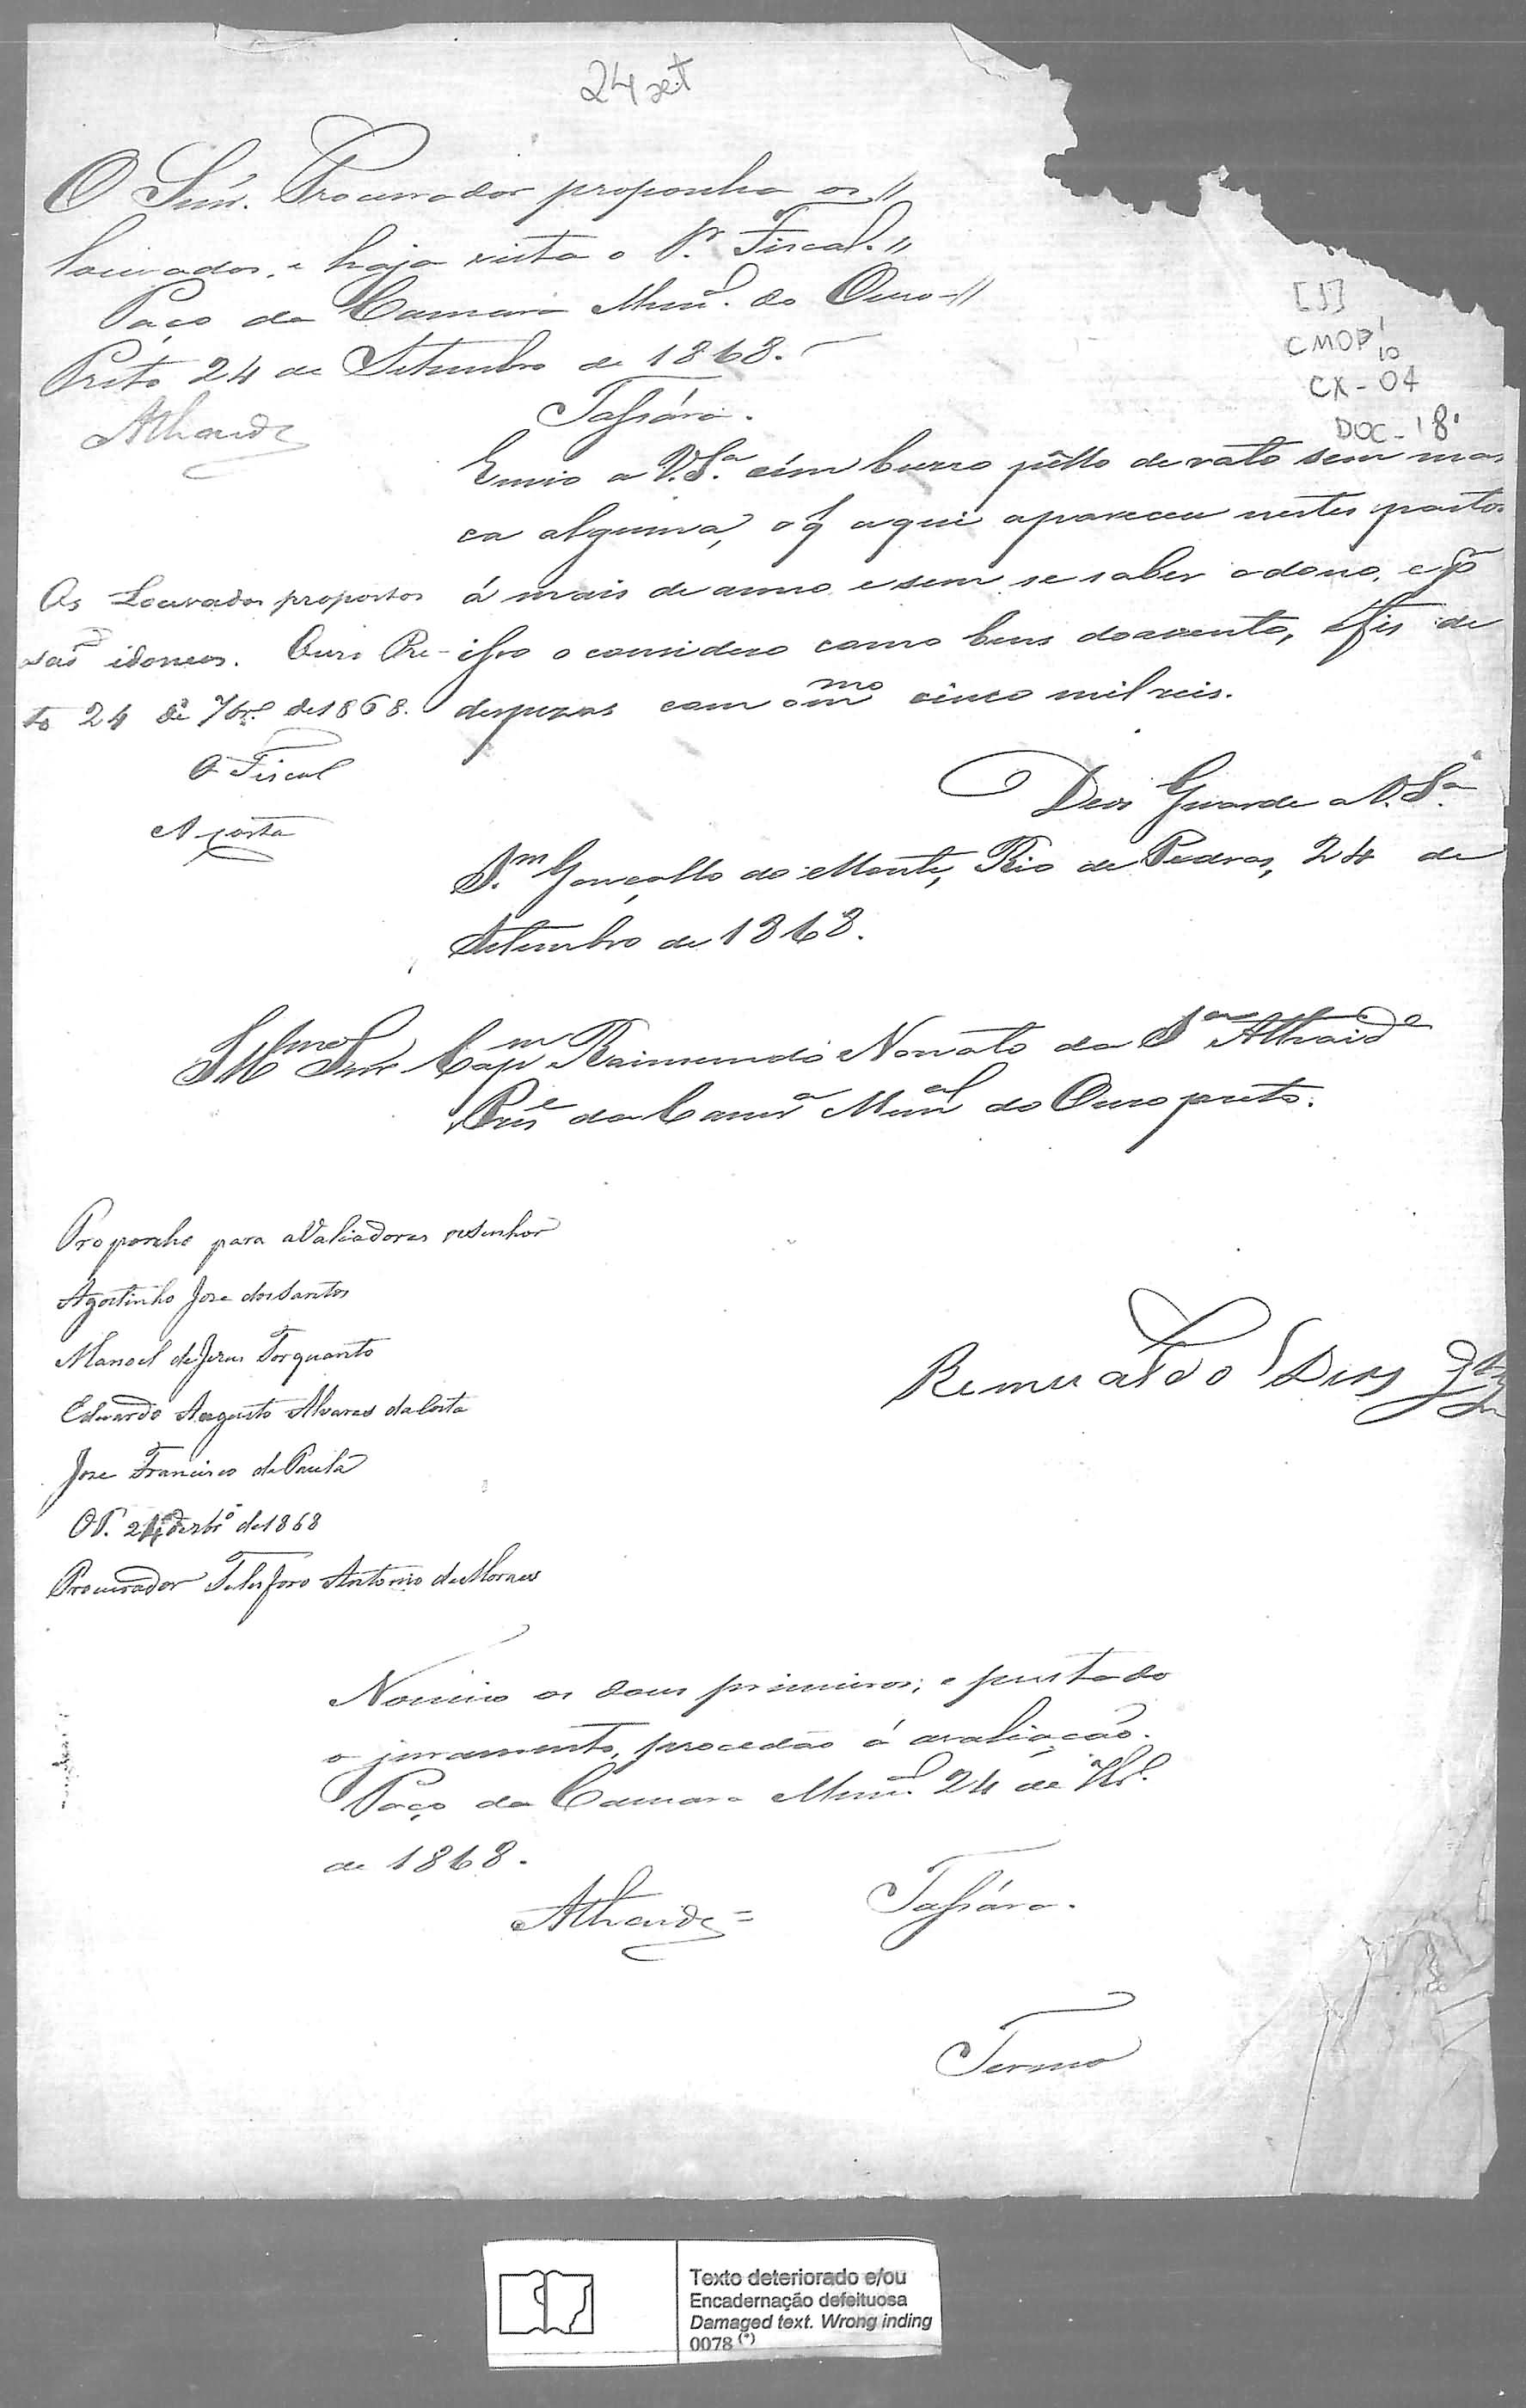 24 set
O Snr. Procurador proponha os //
louvados, e haja vista o Sr. Fiscal. //
Paço da Camara Munal. do Ouro- //
Preto 24 de Setembro de 1868. -
Athaide
Tassára.
[1]
CMOP
10
CX - 04
DOC - 18
Envio a V.Sa. cim burro pêllo de rato sem mar
ca alguma, o q aqui apareceu nestes pastos
á mais de anno e sem se saber o dono, e p
isso o considero como bens do avento, e fis de
despezas com o mmo cinco mil reis.
Deos Guarde a V. Sa.
Sm. Gonçallo do Monte, Rio de Pedras, 24 de
Setembro de 1868.
Os Louvados propostos
são idoneos. Ouro Pre-
to 24 de 7br.o de 1868.
O Fiscal
A Costa
Illmo Snr Capm Raimundo Nonato da Sa Athaide
Prese da Camra Munal do Ouro preto.
Proponho para aValiadores osSenhor
Agostinho Jose dos Santos
Manoel de Jesus Torquanto
Eduardo Augusto Alvares da Costa
Jose Francisco de Paula
OP. 24 de 7br.o de 1868
Procurador Telesforo Antonio de Moraes
Remualdo Dias
Nomeio os dous primeiros; e prestado
o juramento, procedão á avaliação.
Paço da Camara Munal. 24 de 7br.o
de 1868.
Athaide =
Tassára.
Termo
Texto deteriorado e/ou
Encadernação defeituosa
Damaged text. Wrong inding
0078 (*)